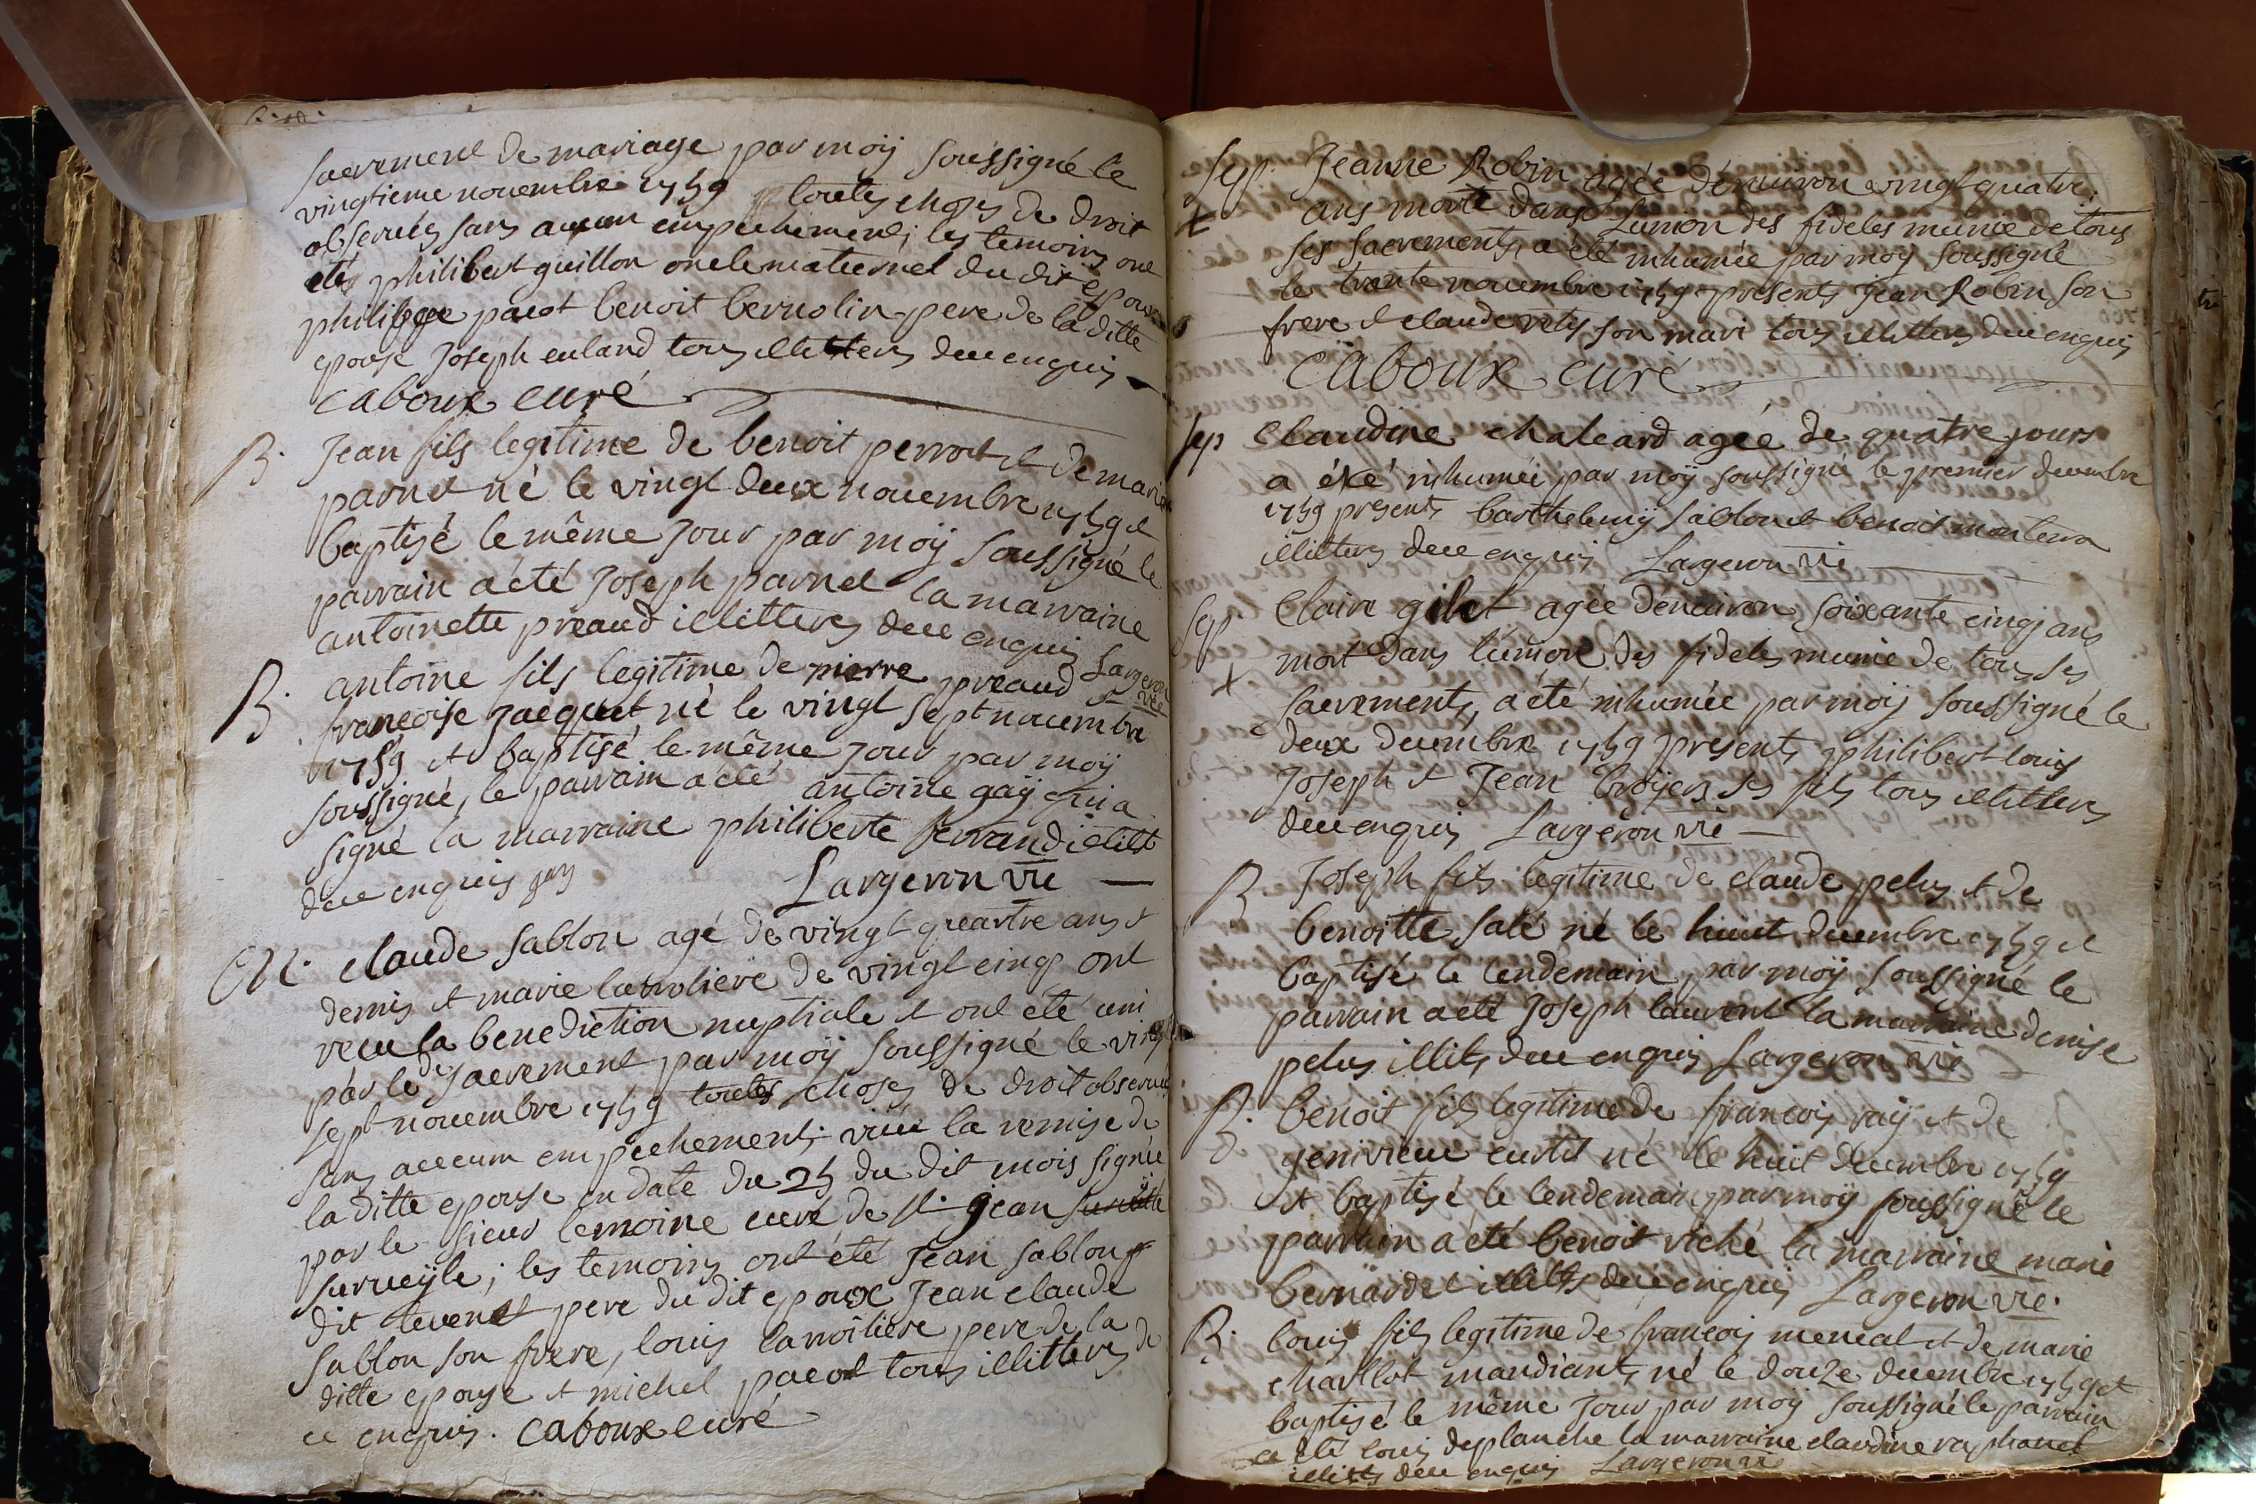 sacrement de mariage par moÿ soussigné le
vingtieme novembre 1759 toutes choses de droit
observées sans aucun empechement; les temoins ont
etés philibert guillon oncle maternel du dit epoux
philippe pacot benoit bernolin pere de la ditte
epouse Joseph enland tous illitteres de ce enquis
Caboux curé
B. Jean fils legitime de benoit perrot et de marie
parnet né le vingt deux novembre 1759 et
baptisé le même jour par moÿ soussigné le
parrain a été Joseph parnet la marraine
antoinette preaud illitteres de ce enquis Largeron
vic
B. antoine fils legitime de pierre preaud et
francoise jacquet né le vingt sept novembre
1759 et baptisé le même jour par moÿ
soussigné, le parrain a été antoine gaÿ qui a
signé la marraine philiberte ferrand illitt
de ce enquis gay Largeron vic
M. claude sablon agé de vingt quattre ans et
demis et marie larroliere de vingt cinq ont
recu la benediction nuptiale et ont été uni
par le dit sacrement par moÿ soussigné le vingt
sept novembre 1759 toutes choses de droit observées
sans aucum empechement; vüe la remise de
la ditte epouse en date du 25 du dit mois signée
par le sieur lemoine curé de st jean
surveÿle; les temoins ont été Jean sablon
dit tevenet pere du dit epoux Jean claude
sablon son frere, louis larroiliere pere de la
ditte epouse et michel pacot tous illitteres de
ce enquis. Caboux curé
Sep. Jeanne Robin agée d'environ vingt quatre
ans morte dans l'union des fideles munie de tous
ses sacrements, a été inhumée par moÿ soussigné
le trente novembre 1759 presents Jean Robin son
frere et claude velis son mari tous illitteres de ce enquis
Caboux curé
Sep Claudine chaleard agée de quatre jours
a été inhumée par moÿ soussigné le premier decembre
1759 presents barthelemÿ sablon et benoit monterra
illitteres de ce enquis Largeron vic
Sep. Claire gilet agée d'environ soixante cinq ans
mort dans l'union des fideles munie de tous ses
sacrements, a été inhumée par moÿ soussigné le
deux decembre 1759 presents philibert louis
Joseph et Jean broÿer ses fils tous illitteres
de ce enquis Largeron vic
B Joseph fils legitime de claude pelus et de
benoitte salé né le huit decembre 1759 et
baptisé le lendemain par moÿ soussigné le
parrain a été Joseph laurent la marraine denise
pelus illits de ce enquis Largeron vic
B. benoit fils legitime de francois raÿ et de
genivieve curtil né le huit decembre 1759
et baptisé le lendemain par moÿ soussigné le
parrain a été benoit viché la marraine marie
bernardet illitts de ce enquis Largeron vic.
B. louis fils legitime de francois meneal et de marie
charllot mandiants, né le douze decembre 1759 et
baptisé le même jour par moÿ soussigné le parrain
a été louis deplanche la marraine claudine raphanel
illitts de ce enquis Largeron vic